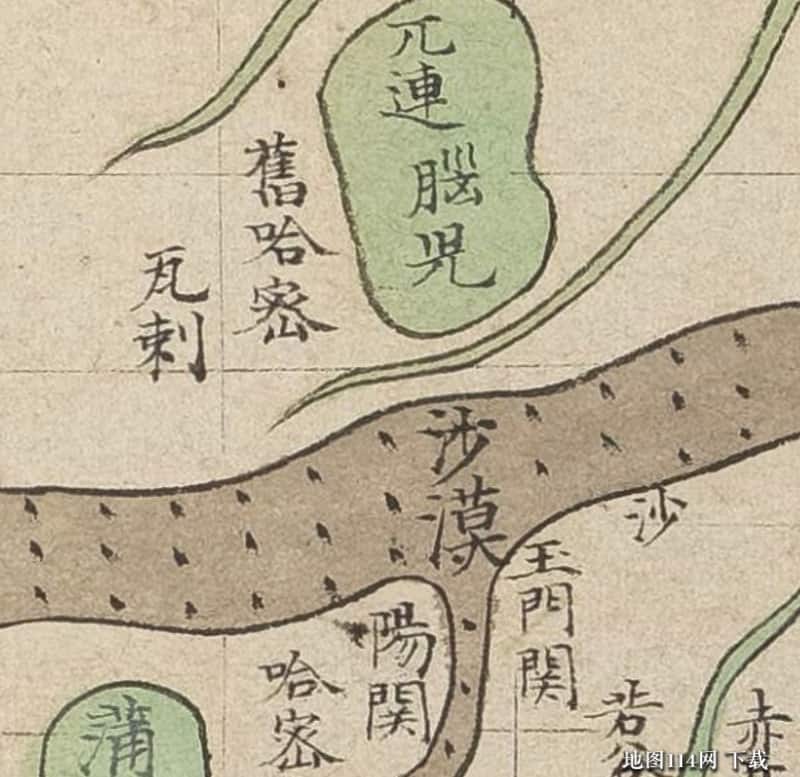 兀連
腦児
舊哈密
瓦剌
沙漠
沙
玉門関
陽関
哈密
蒲
若
赤
地图114网 下载